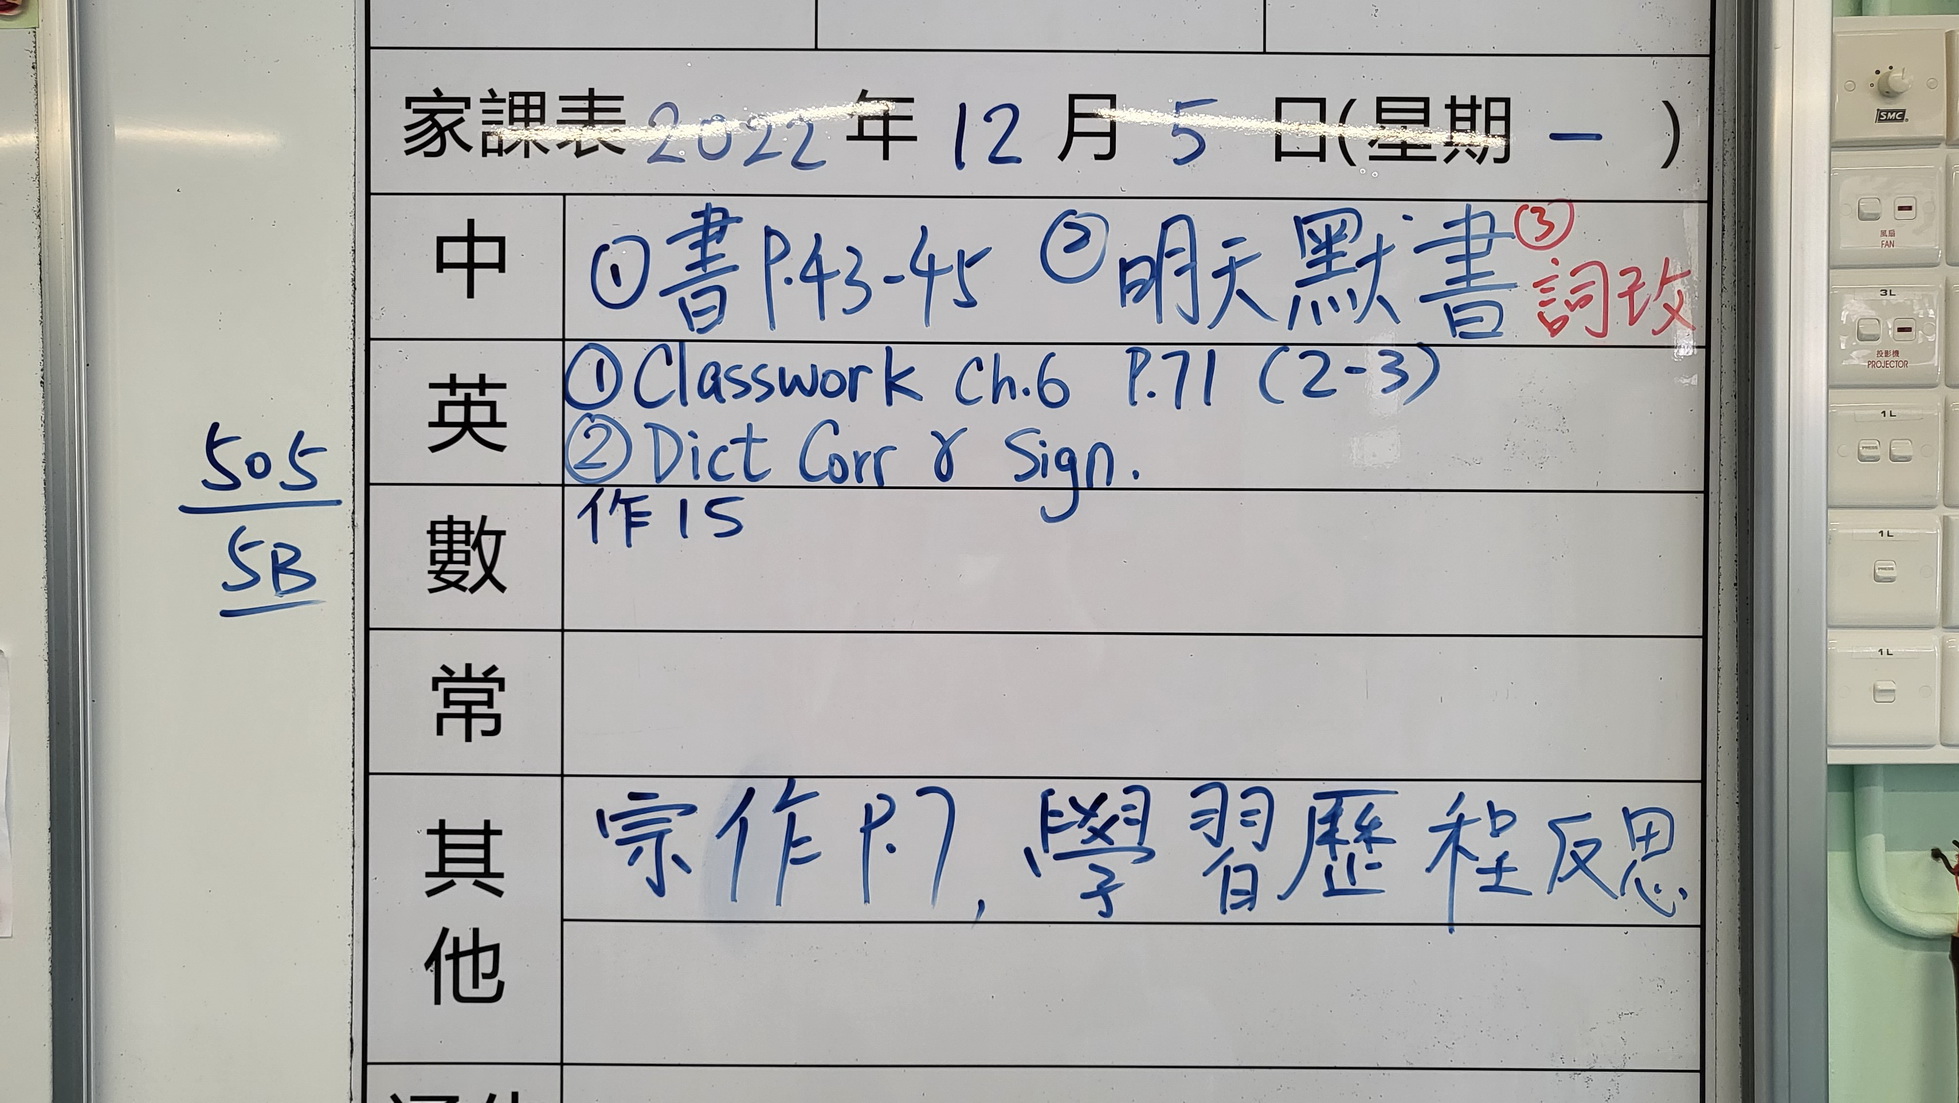 家課表 2022 年 12 月 5 日(星期 一 )
中 ①書 P.43-45 ②明天默書 ③詞改
英 ①Classwork Ch.6 P.71 (2-3)
②Dict Corr & Sign.
505
5B
數 作15
常
其他 宗作 P.7, 學習歷程反思
SMC
風扇
FAN
3L
投影機
PROJECTOR
1L
PRESS
1L
PRESS
1L